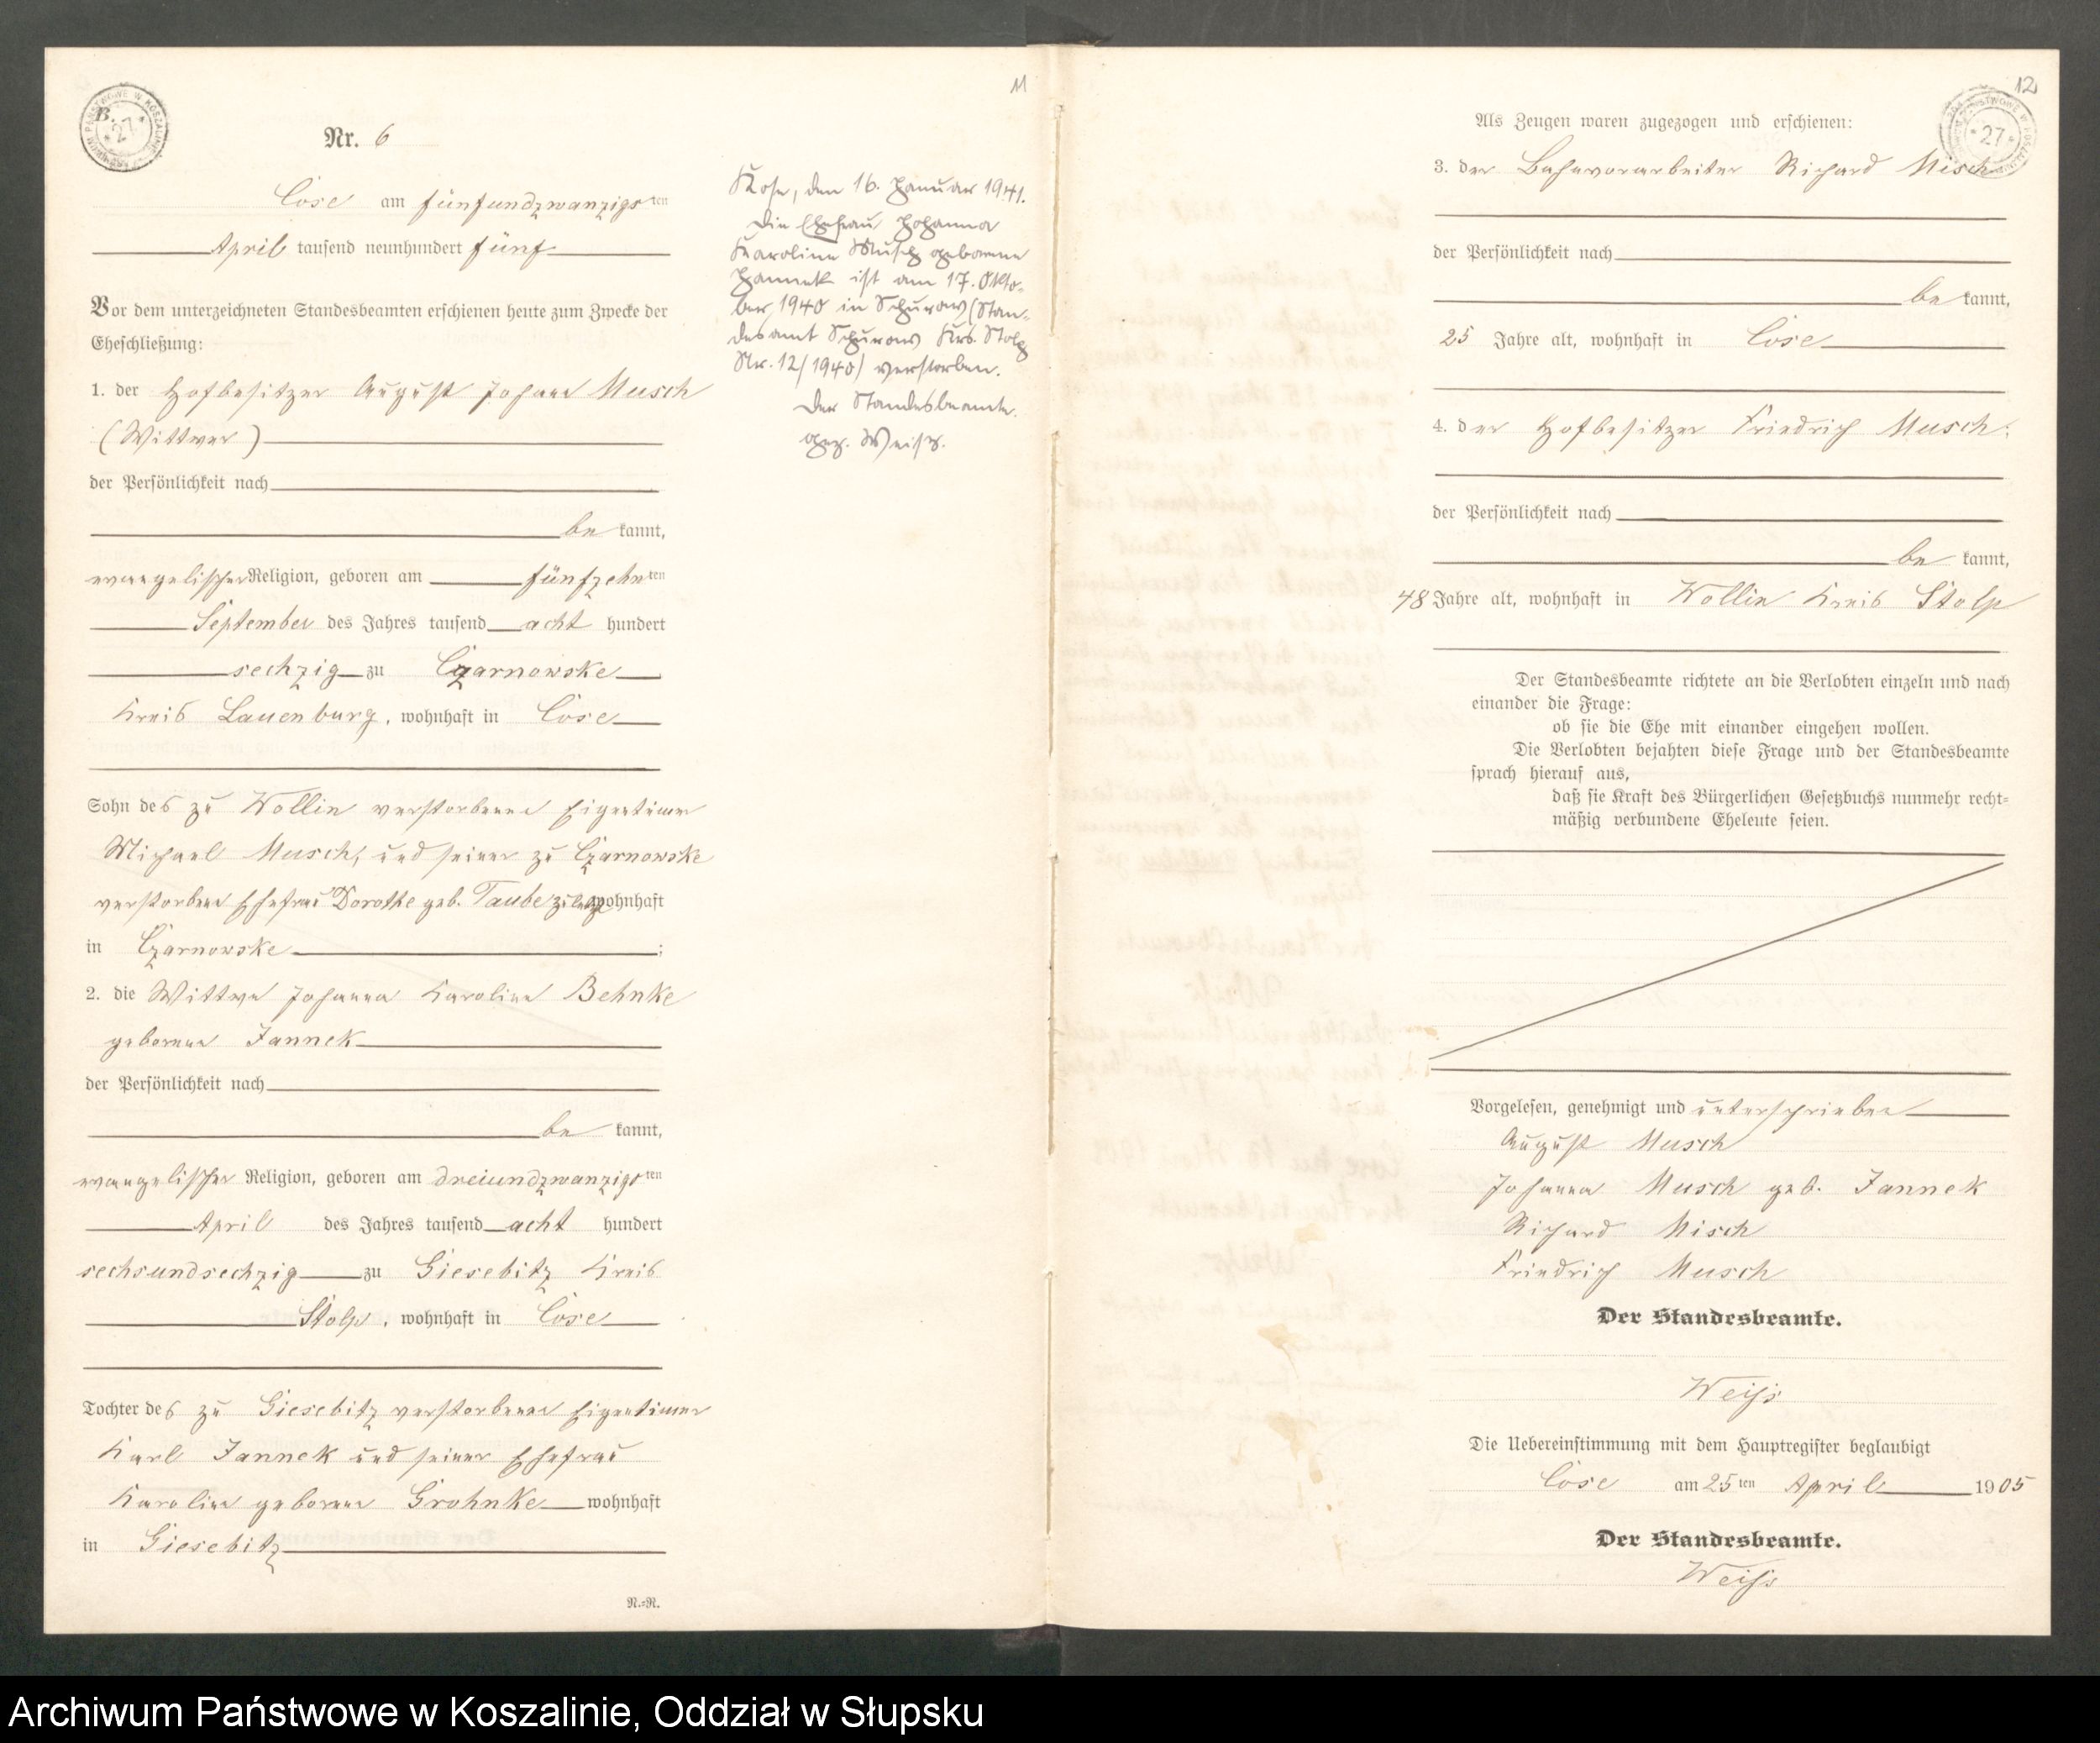 B.
ARCHIWUM PAŃSTWOWE W KOSZALINIE
* 27 *
Nr. 6
11
Cose am fünfundzwanzigsten
April tausend neunhundert fünf
Vor dem unterzeichneten Standesbeamten erschienen heute zum Zwecke der
Eheschließung:
1. der Hofbesitzer August Johann Musch
(Wittwer)
der Persönlichkeit nach
be kannt,
evangelischer Religion, geboren am fünfzehnten
September des Jahres tausend acht hundert
sechzig zu Czarnowske
Kreis Lauenburg, wohnhaft in Cose
Sohn des zu Wollin verstorbenen Eigentümer
Michael Musch, und seiner zu Czarnowske
verstorbene Ehefrau Dorothe geb. Taube zuletzt wohnhaft
in Czarnowske;
2. die Wittwe Johanna Karoline Behnke
geborene Jannek
der Persönlichkeit nach
be kannt,
evangelischer Religion, geboren am dreiundzwanzigsten
April des Jahres tausend acht hundert
sechsundsechzig zu Giesebitz Kreis
Stolp, wohnhaft in Cose
Tochter des zu Giesebitz verstorbenen Eigentümer
Karl Jannek und seiner Ehefrau
Karoline geborene Grohnke wohnhaft
in Giesebitz
N.=R.
Kose, den 16. Januar 1941.
Die Ehefrau Johanna
Karoline Musch geborene
Jannek ist am 17. Okto-
ber 1940 in Schurow (Stan-
desamt Schurow Krs. Stolp
Nr. 12/1940) verstorben.
Der Standesbeamte.
gez. Weiß.
12
ARCHIWUM PAŃSTWOWE W KOSZALINIE
* 27 *
Als Zeugen waren zugezogen und erschienen:
3. der Bahnvorarbeiter Richard Misch
der Persönlichkeit nach
be kannt,
25 Jahre alt, wohnhaft in Cose
4. der Hofbesitzer Friedrich Musch.
der Persönlichkeit nach
be kannt,
48 Jahre alt, wohnhaft in Wollin Kreis Stolp
Der Standesbeamte richtete an die Verlobten einzeln und nach
einander die Frage:
ob sie die Ehe mit einander eingehen wollen.
Die Verlobten bejahten diese Frage und der Standesbeamte
sprach hierauf aus,
daß sie Kraft des Bürgerlichen Gesetzbuchs nunmehr recht=
mäßig verbundene Eheleute seien.
Vorgelesen, genehmigt und unterschrieben
August Musch
Johanna Musch geb. Jannek
Richard Misch
Friedrich Musch
Der Standesbeamte.
Weiß
Die Uebereinstimmung mit dem Hauptregister beglaubigt
Cose am 25ten April 1905
Der Standesbeamte.
Weiß
Archiwum Państwowe w Koszalinie, Oddział w Słupsku